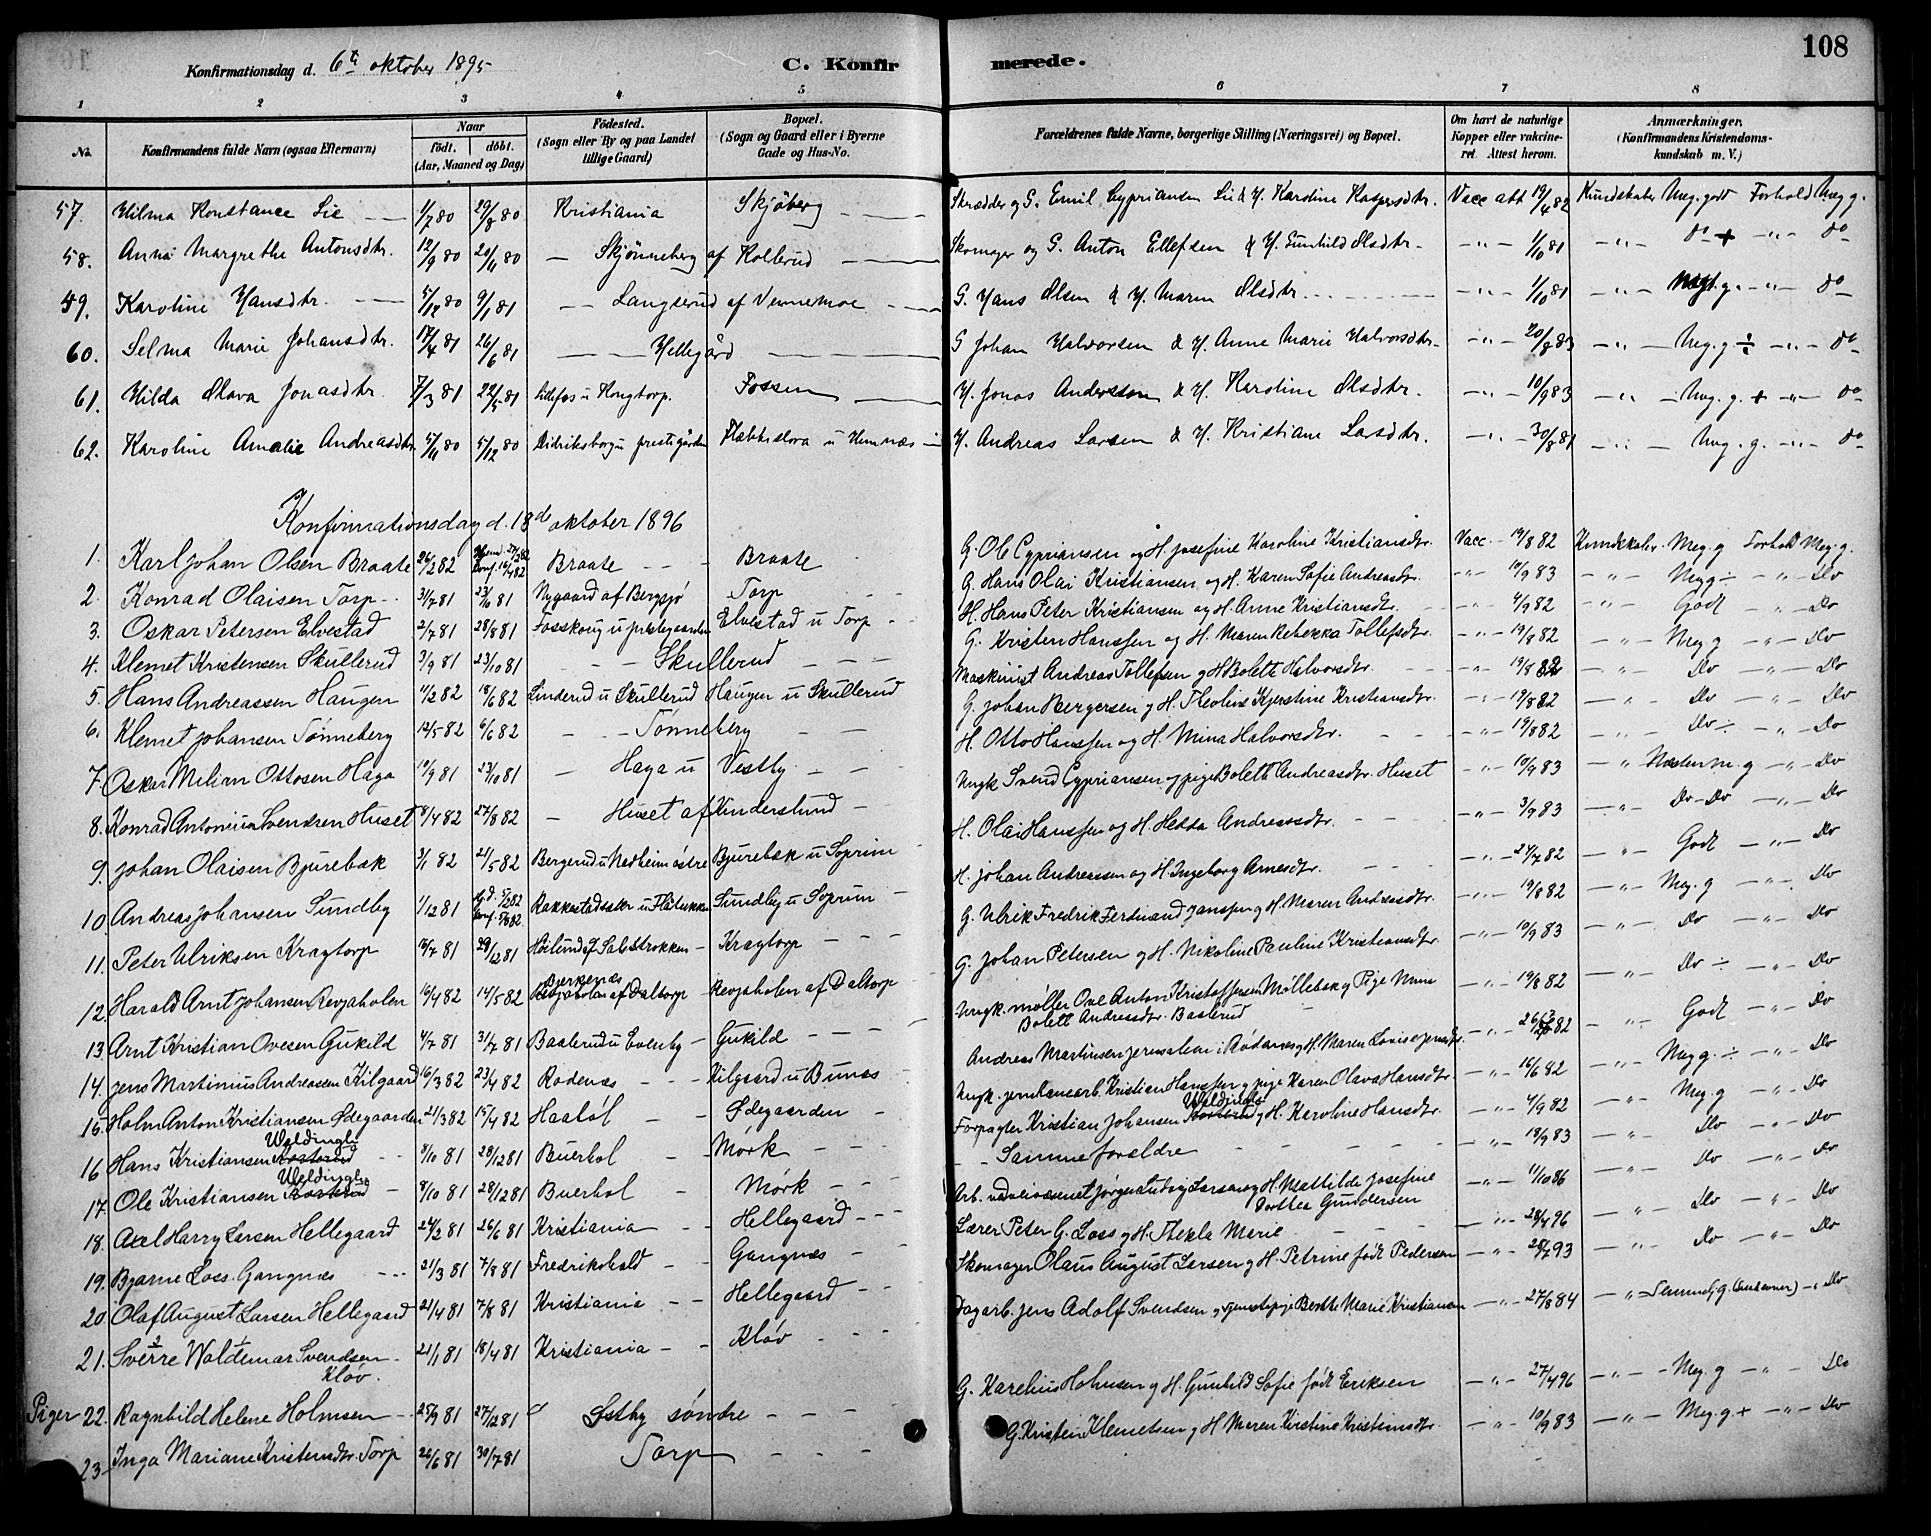 108
Konfirmationsdag d. 6te oktober 1895
C. Konfirmerede.
1 2 3 4 5 6 7 8
No. Konfirmandens fulde Navn (ogsaa Efternavn) Naar født. døbt. (Aar, Maaned og Dag) Fødested. (Sogn eller By og paa Landet tillige Gaard) Bopæl. (Sogn og Gaard eller i Byerne Gade og Hus-No. Forældrenes fulde Navne, borgerlige Stilling (Næringsvei) og Bopæl. Om havt de naturlige Kopper eller vakcineret. Attest herom. Anmærkninger. (Konfirmandens Kristendomskundskab m. V.)
57. Hilma Konstance Lie 1/7 80 29/8 80 Kristiania Skjøberg Skrædder og G. Emil Cypriansen Lie & H. Karoline Kaspersdtr. Vacc att 19/4 82 Kundskaber Meg. godt Forhold Meg g.
58. Anna Margrethe Antonsdtr. 12/9 80 20/11 80 Skjønneberg af Kollerud Skomager og G. Anton Ellefsen & H. Gunhild Olsdtr. 1/10 81 do + do
59. Karoline Hansdtr. 5/12 80 9/1 81 Langserud af Vennemoe G. Hans Olsen & H. Maren Olsdtr. 1/10 81 Meg. g. do
60. Selma Marie Johansdtr. 17/4 81 26/6 81 Hellegård G Johan Halvorsen & H. Anne Marie Halvorsdtr. 20/8 83 Meg. g ÷ do
61. Hilda Olava Jonasdtr. 7/3 81 22/5 81 Lillefos u Kongtorp. Fossen H. Jonas Andersen & H. Karoline Olsdtr. 10/9 83 Meg. g. + do
62. Karoline Amalie Andreasdtr. 5/11 80 5/12 80 Didriksborg u prestegården Flæbbeslora u Hemnæs H. Andreas Larsen & H. Kristiane Larsdtr. 30/8 81 Meg. g. do
Konfirmationsdag d. 18de oktober 1896
1. Karl Johan Olsen Braate 26/2 82 Hjem. 27/3 82 Conf. 16/4 82 Braate Braate G. Ole Cypriansen og H. Josefine Karoline Kristiansdtr. Vacc. 19/8 82 Kundskaber. Meg. g Forhold Meg. g.
2. Konrad Olaisen Torp 31/7 81 23/10 81 Nygaard af Bergsjø Torp G. Hans Olai Kristiansen og H. Karen Sofie Andreasdtr. 10/9 83 Meg g ÷ Do
3. Oskar Petersen Elvestad 2/7 81 28/8 81 Fosskoug u prestegaarden Elvestad u Torp H. Hans Peter Kristiansen og H. Anne Kristiansdtr. 4/9 82 Godt Do
4. Klemet Kristensen Skullerud 3/9 81 23/10 81 Skullerud G. Kristen Hanssen og H. Maren Rebekka Tollefsdtr. 19/8 82 Meg g Do
5. Hans Andreassen Haugen 11/2 82 18/6 82 Linderud u Skullerud Haugen u Skullerud Maskinist Andreas Tollefsen g H Bolett Halvorsdtr. 19/8 82 Do Do
6. Klemet Johansen Tønneberg 12/5 82 6/6 82 Tønneberg G. Johan Bergersen g H. Theoline Kjerstine Kristiansdtr. 19/8 82 Do Do
7. Oskar Milian Ottosen Haga 10/9 81 23/10 81 Haga u Vestby H. Otto Hanssen og H. Mina Halvorsdtr. 19/8 82 Do ÷ Do
8. Konrad Antonius Svendsen Huset 8/4 82 27/8 82 Huset af Kinderslund Ungk Svend Cypriansen og pige Bolett Andreasdtr. Huset 10/9 83 Næsten m. g Do
9. Johan Olaisen Bjurebæk 3/1 82 21/5 82 Bergerud u Nadheim østre Bjurebæk u Soprim H. Olai Hanssen og H. Hedda Andreasdtr. 3/9 83 Do Do Do
10 Andreas Johansen Sundby 1/12 81 Kakkestadsæter u Flatukken Sundby u Soprim H. Johan Andreassen og H. Ingeborg Arnesdtr. 24/7 82 Godt Do
11. Peter Ulriksen Kragtorp 16/7 81 29/12 81 Høilund af Salsbrokken Kragtorp G. Ulrik Fredrik Ferdinand Janssen g H. Maren Andreasdtr. 19/8 82 Meg. g Do
12. Harald Arnt Johansen Revjaholen 16/4 82 14/5 82 Bjerkenæs Revjaholen af Daltorp Revjaholen af Daltorp G. Johan Petersen og H. Nikoline Pauline Kristiansdtr. 10/9 83 Do Do
13 Arnt Kristian Ovesen Gukild 4/7 81 31/7 81 Baaserud u Evenby Gukild Ungk. møller Ove Anton Kristoffersen Møllebæk g Pige Mina Bolett Andreasdtr. Baaserud 19/8 82 Do ÷ Do
14. Jens Martinius Andreasen Kilgaard 16/3 82 23/4 82 Rodenæs Kilgaard u Bunæs Andreas Martinsen Jerusalem i Rødenæs g H. Maren Lovise Jensdtr. Godt Do
15. Holm Anton Kristiansen Ødegaarden 21/3 82 15/4 82 Haabøl Ødegaarden Ungk. jernbanearb. Kristian Hanssen g pige Karen Olava Hansdtr. 16/6 82 Meg g. ÷ Do
16 Hans Kristiansen Kasterud Waldingli 8/10 81 28/12 81 Buerhol Mørk Forpagter Kristian Johansen Kasterud Waldingli g H. Karoline Hansdtr. 4/9 82 Meg. g Do
17. Ole Kristiansen Kasterud Waldingli 8/10 81 28/12 81 Buerhol Mørk Samme forældre 19/9 83 Do Do
18. Axel Harry Larsen Hellegaard 24/2 81 26/6 81 Kristiania Hellegaard Arb. ved veivæsenet Jørgen Ludvig Larsen og H. Mathilde Josefine Dorthea Gundersen 11/10 86 Do Do
19. Bjarne Loss. Gangnæs 21/3 81 7/8 81 Fredrikshald Gangnæs Lærer Peter G. Loss g H. Thekla Marie 28/4 96 Do Do
20 Olaf August Larsen Hellegaard 21/4 81 7/8 81 Kristiania Hellegaard Skomager Olaus August Larsen g H. Petrine født Pedersen 28/7 93 Do Do
21. Sverre Waldemar Svendsen Kløv. 21/1 81 18/4 81 Kristiania Kløv Fagarb. Jens Adolf Svendsen g tjenestepige Berthe Marie Kristiansen 27/8 84 Do
Piger 22. Ragnhild Helene Holmsen 25/9 81 27/12 81 Østby søndre G. Karelius Holmsen g H. Gunhild Sofie født Eriksen 27/4 96 Meg. g Do
23 Inga Mariane Kristensdtr. Torp 26/6 81 30/7 81 Torp G. Kristen Klemetsen g H Maren Kirstine Kristiansdtr. 10/9 83 Meg. g + Do